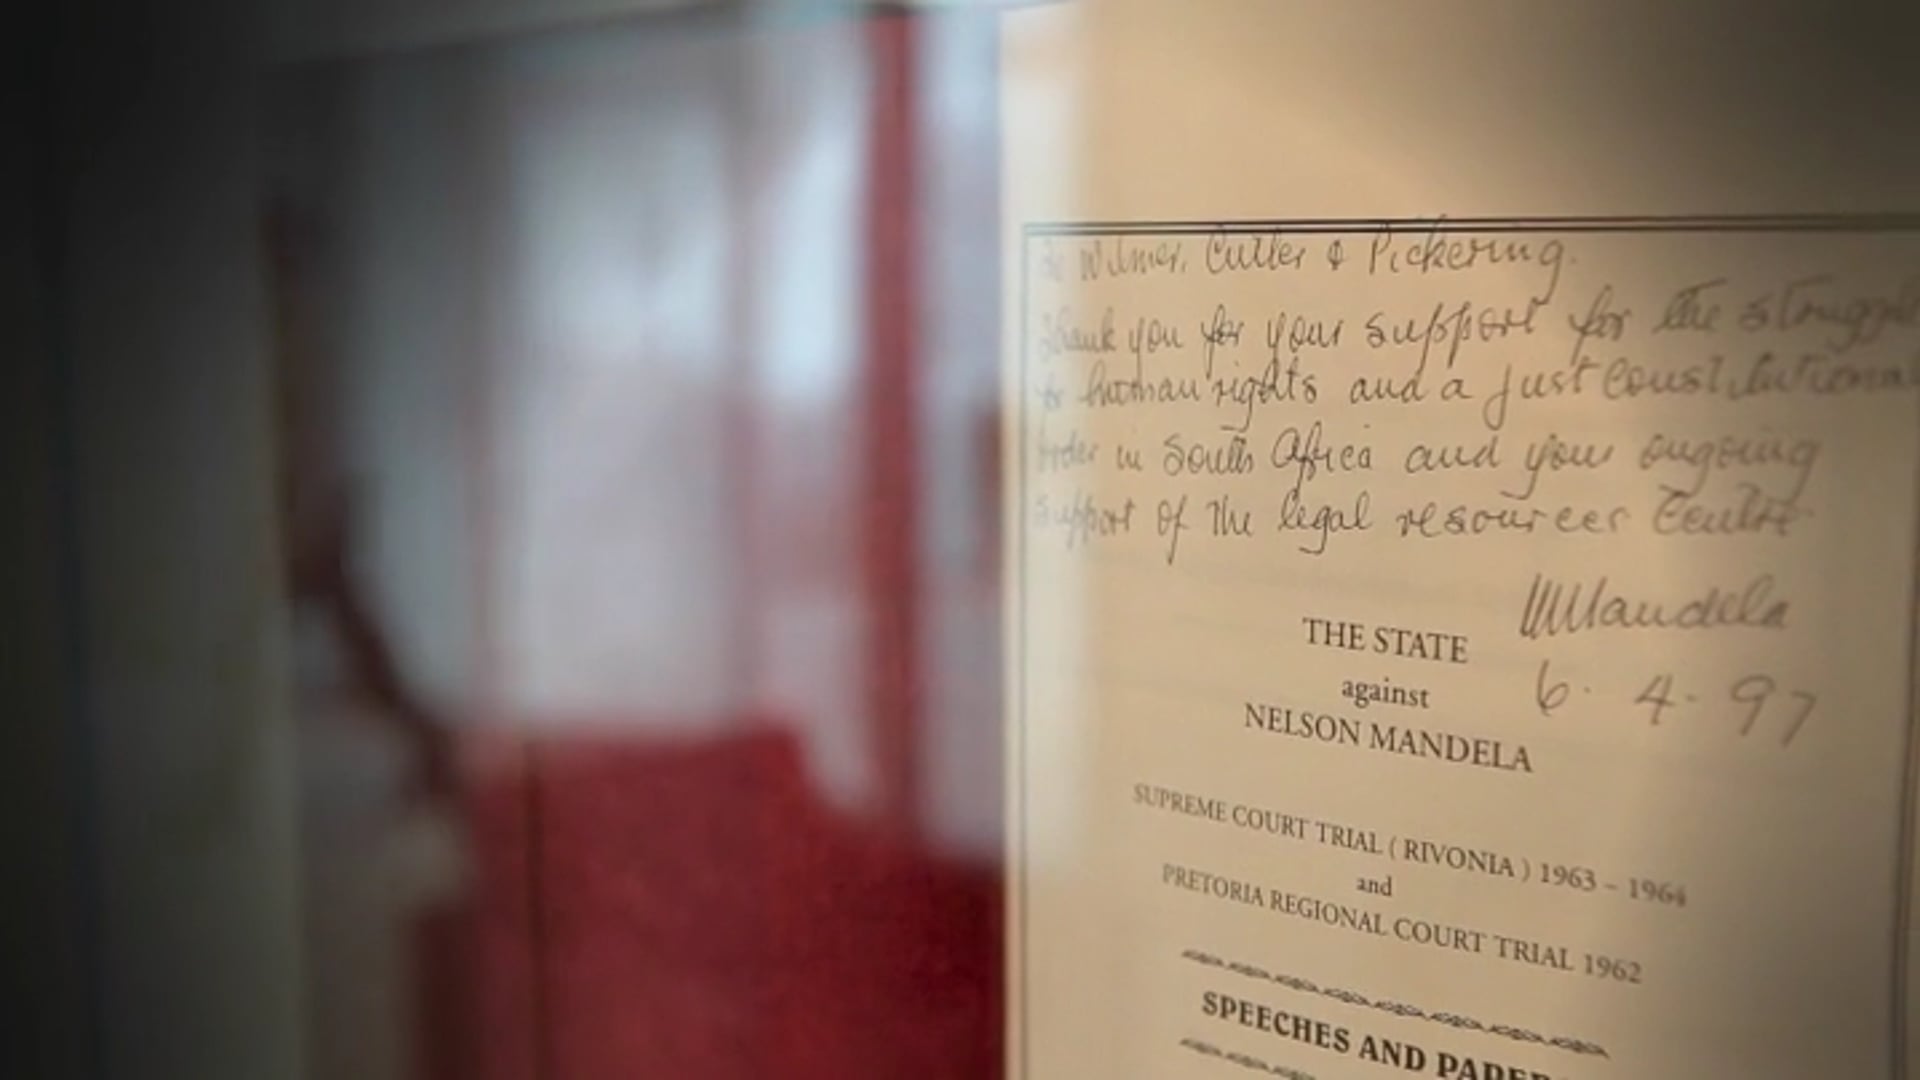 to Wilmer, Cutler & Pickering.
Thank you for your support for the struggle
for human rights and a just constitutional
order in South Africa and your ongoing
support of the legal resources Centre
NMandela
6. 4. 97
THE STATE
against
NELSON MANDELA
SUPREME COURT TRIAL ( RIVONIA ) 1963 – 1964
and
PRETORIA REGIONAL COURT TRIAL 1962
SPEECHES AND